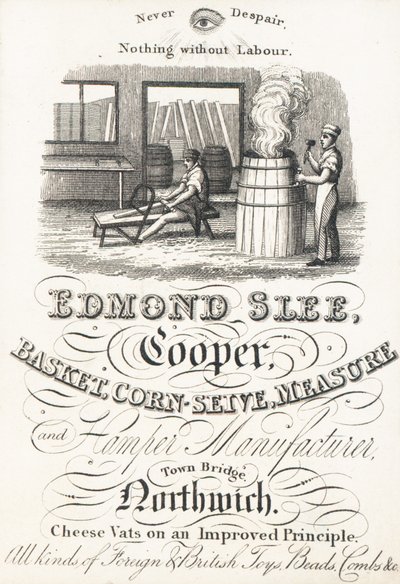 Never Despair.
Nothing without Labour.
EDMOND SLEE,
Cooper,
BASKET, CORN-SEIVE, MEASURE
and Hamper Manufacturer,
Town Bridge.
Northwich.
Cheese Vats on an Improved Principle.
All kinds of Foreign & British Toys, Beads, Combs &c.